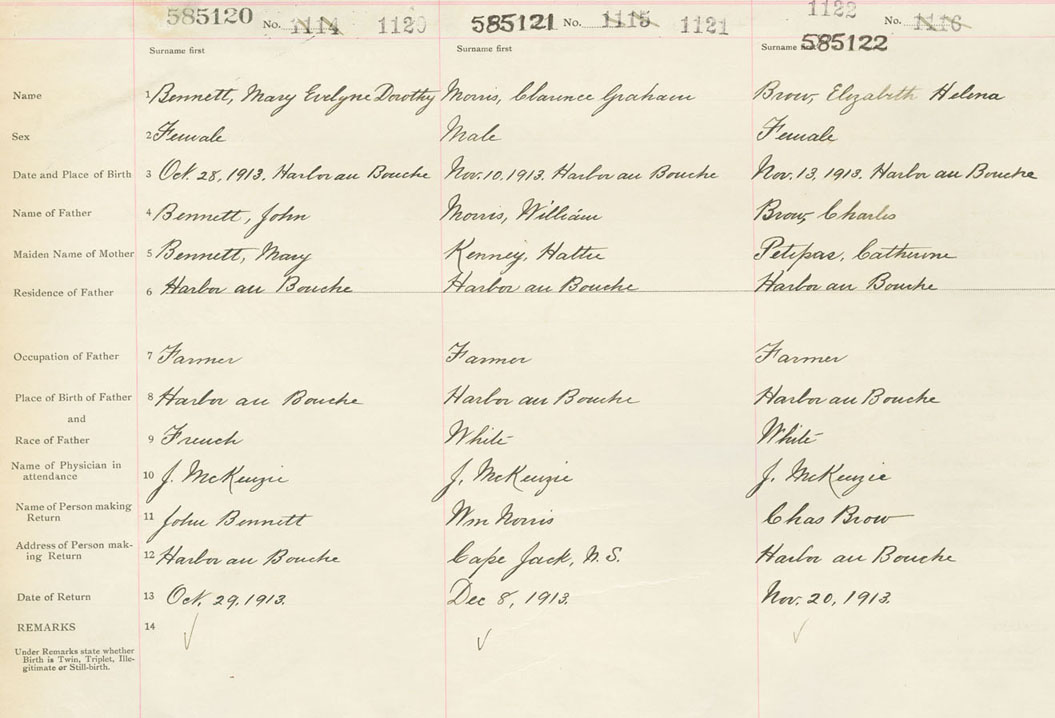 585120 No. 1114 1120 585121 No. 1115 1121 1122 No. 1116
Surname first Surname first Surname first 585122
Name 1 Bennett, Mary Evelyne Dorothy Morris, Clarence Graham Brow, Elizabeth Helena
Sex 2 Female Male Female
Date and Place of Birth 3 Oct. 28, 1913. Harbor au Bouche Nov. 10, 1913. Harbor au Bouche Nov. 13, 1913. Harbor au Bouche
Name of Father 4 Bennett, John Morris, William Brow, Charles
Maiden Name of Mother 5 Bennett, Mary Kenney, Hattie Petipas, Catherine
Residence of Father 6 Harbor au Bouche Harbor au Bouche Harbor au Bouche
Occupation of Father 7 Farmer Farmer Farmer
Place of Birth of Father 8 Harbor au Bouche Harbor au Bouche Harbor au Bouche
and
Race of Father 9 French White White
Name of Physician in
attendance 10 J. McKenzie J. McKenzie J. McKenzie
Name of Person making
Return 11 John Bennett Wm Norris Chas Brow
Address of Person mak-
ing Return 12 Harbor au Bouche Cape Jack, N.S. Harbor au Bouche
Date of Return 13 Oct. 29, 1913. Dec 8, 1913. Nov. 20, 1913.
REMARKS 14
Under Remarks state whether
Birth is Twin, Triplet, Ille-
gitimate or Still-birth.